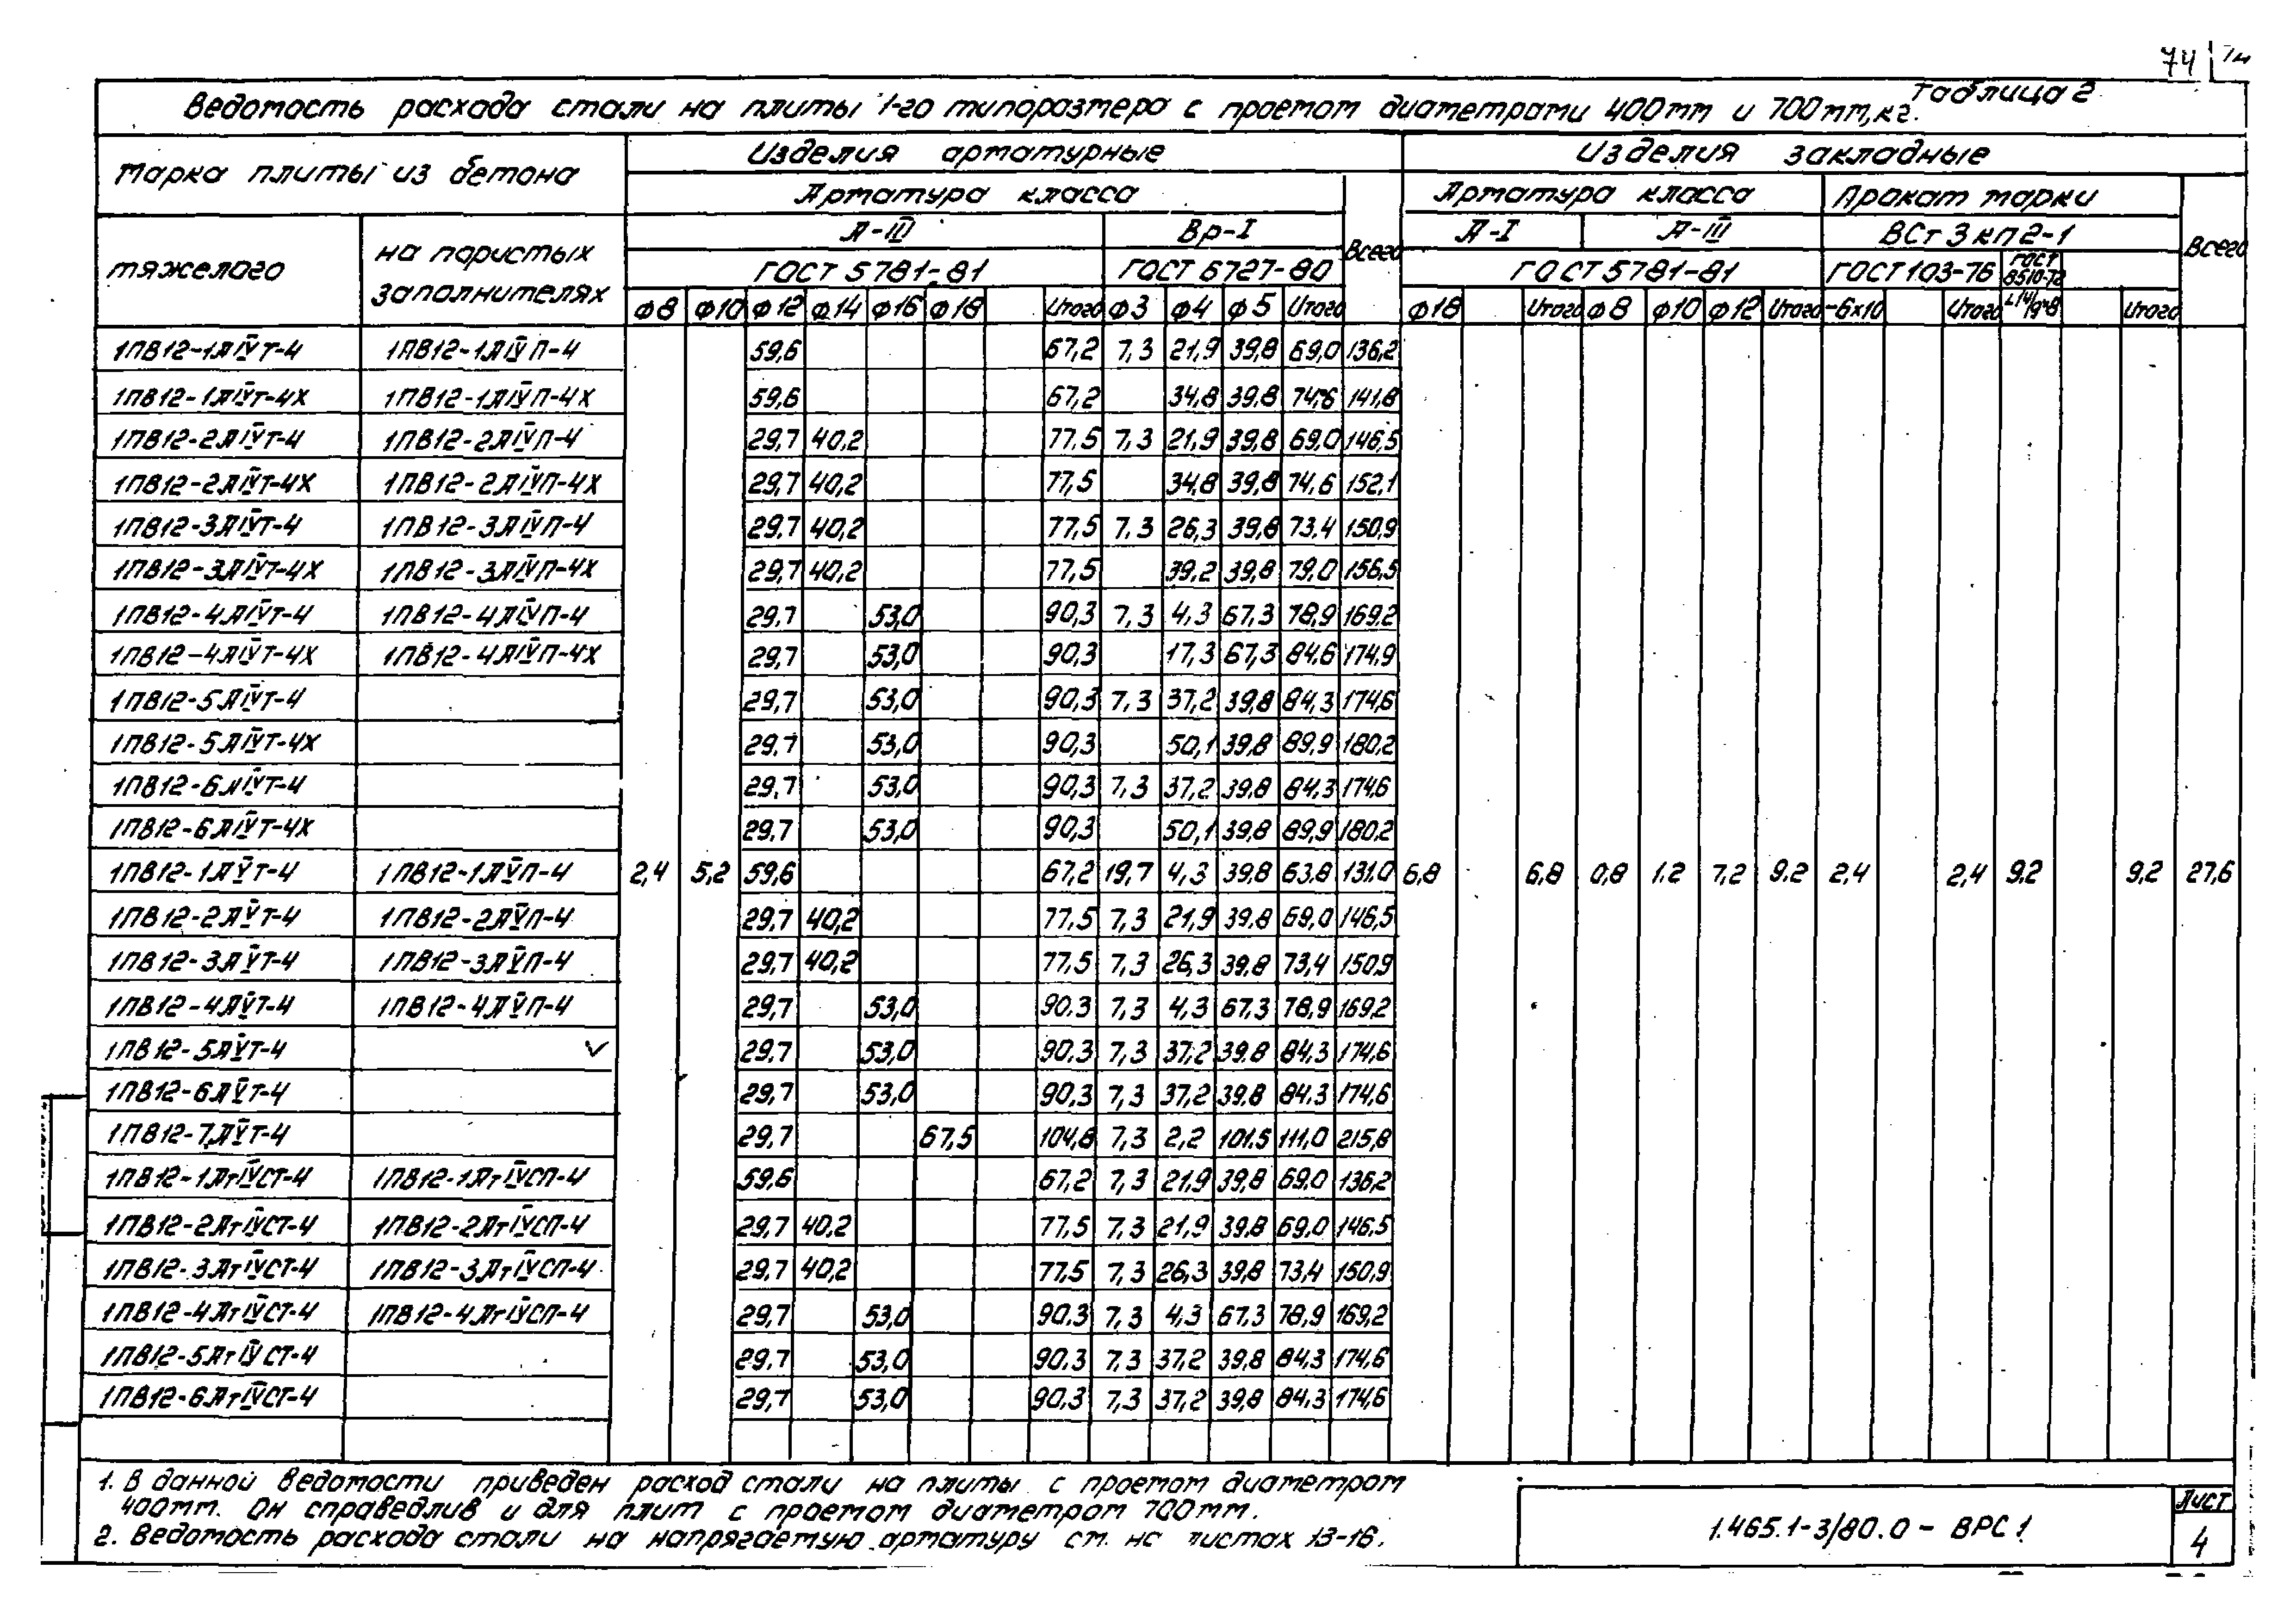 74
Таблица 2
Ведомость расхода стали на плиты 1-го типоразмера с проемом диаметрами 400мм и 700мм, кг.
Марка плиты из бетона Изделия арматурные Изделия закладные
Арматура класса Всего Арматура класса Прокат марки Всего
тяжелого на пористых заполнителях А-III Вр-I А-I А-III ВСт3кп2-1
ГОСТ 5781-81 ГОСТ 6727-80 ГОСТ 5781-81 ГОСТ 103-76 ГОСТ 8510-72
Ф8 Ф10 Ф12 Ф14 Ф16 Ф18 Итого Ф3 Ф4 Ф5 Итого Ф18 Итого Ф8 Ф10 Ф12 Итого -6х10 Итого Итого
1ПВ12-1АIVТ-4 1ПВ12-1АIVП-4 59,6 67,2 7,3 21,9 39,8 69,0 136,2
1ПВ12-1АIVТ-4Х 1ПВ12-1АIVП-4Х 59,6 67,2 34,8 39,8 74,6 141,8
1ПВ12-2АIVТ-4 1ПВ12-2АIVП-4 29,7 40,2 77,5 7,3 21,9 39,8 69,0 146,5
1ПВ12-2АIVТ-4Х 1ПВ12-2АIVП-4Х 29,7 40,2 77,5 34,8 39,8 74,6 152,1
1ПВ12-3АIVТ-4 1ПВ12-3АIVП-4 29,7 40,2 77,5 7,3 26,3 39,8 73,4 150,9
1ПВ12-3АIVТ-4Х 1ПВ12-3АIVП-4Х 29,7 40,2 77,5 39,2 39,8 79,0 156,5
1ПВ12-4АIVТ-4 1ПВ12-4АIVП-4 29,7 53,0 90,3 7,3 4,3 67,3 78,9 169,2
1ПВ12-4АIVТ-4Х 1ПВ12-4АIVП-4Х 29,7 53,0 90,3 17,3 67,3 84,6 174,9
1ПВ12-5АIVТ-4 29,7 53,0 90,3 7,3 37,2 39,8 84,3 174,6
1ПВ12-5АIVТ-4Х 29,7 53,0 90,3 50,1 39,8 89,9 180,2
1ПВ12-6АIVТ-4 29,7 53,0 90,3 7,3 37,2 39,8 84,3 174,6
1ПВ12-6АIVТ-4Х 29,7 53,0 90,3 50,1 39,8 89,9 180,2
1ПВ12-1АVТ-4 1ПВ12-1АVП-4 2,4 5,2 59,6 67,2 19,7 4,3 39,8 63,8 131,0 6,8 6,8 0,8 1,2 7,2 9,2 2,4 2,4 9,2 9,2 27,6
1ПВ12-2АVТ-4 1ПВ12-2АVП-4 29,7 40,2 77,5 7,3 21,9 39,8 69,0 146,5
1ПВ12-3АVТ-4 1ПВ12-3АVП-4 29,7 40,2 77,5 7,3 26,3 39,8 73,4 150,9
1ПВ12-4АVТ-4 1ПВ12-4АVП-4 29,7 53,0 90,3 7,3 4,3 67,3 78,9 169,2
1ПВ12-5АVТ-4 29,7 53,0 90,3 7,3 37,2 39,8 84,3 174,6
1ПВ12-6АVТ-4 29,7 53,0 90,3 7,3 37,2 39,8 84,3 174,6
1ПВ12-7АVТ-4 29,7 67,5 104,8 7,3 2,2 101,5 111,0 215,8
1ПВ12-1АтIVСТ-4 1ПВ12-1АтIVСП-4 59,6 67,2 7,3 21,9 39,8 69,0 136,2
1ПВ12-2АтIVСТ-4 1ПВ12-2АтIVСП-4 29,7 40,2 77,5 7,3 21,9 39,8 69,0 146,5
1ПВ12-3АтIVСТ-4 1ПВ12-3АтIVСП-4 29,7 40,2 77,5 7,3 26,3 39,8 73,4 150,9
1ПВ12-4АтIVСТ-4 1ПВ12-4АтIVСП-4 29,7 53,0 90,3 7,3 4,3 67,3 78,9 169,2
1ПВ12-5АтIVСТ-4 29,7 53,0 90,3 7,3 37,2 39,8 84,3 174,6
1ПВ12-6АтIVСТ-4 29,7 53,0 90,3 7,3 37,2 39,8 84,3 174,6
1. В данной ведомости приведен расход стали на плиты с проемом диаметром
400мм. Он справедлив и для плит с проемом диаметром 700мм.
2. Ведомость расхода стали на напрягаемую арматуру см. на листах 13-16.
1.465.1-3/80.0 - ВРС1
Лист
4